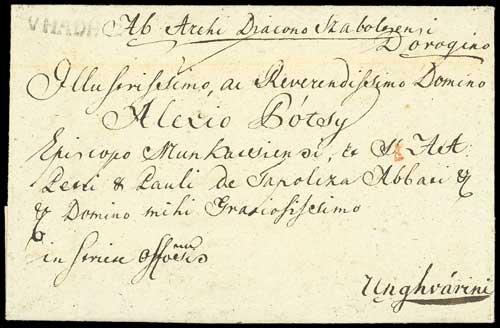 V HADH
Ab Archi Diacono Szabolcsensi
Dorogino
Illustrissimo, ac Reverendissimo Domino
Alexio Pótsy
Episcopo Munkacsiensi, et SS. A A
Petri & Pauli de Tapolcza Abbati &
& Domino mihi Graziosissimo
in Summa Officio
Unghvárini